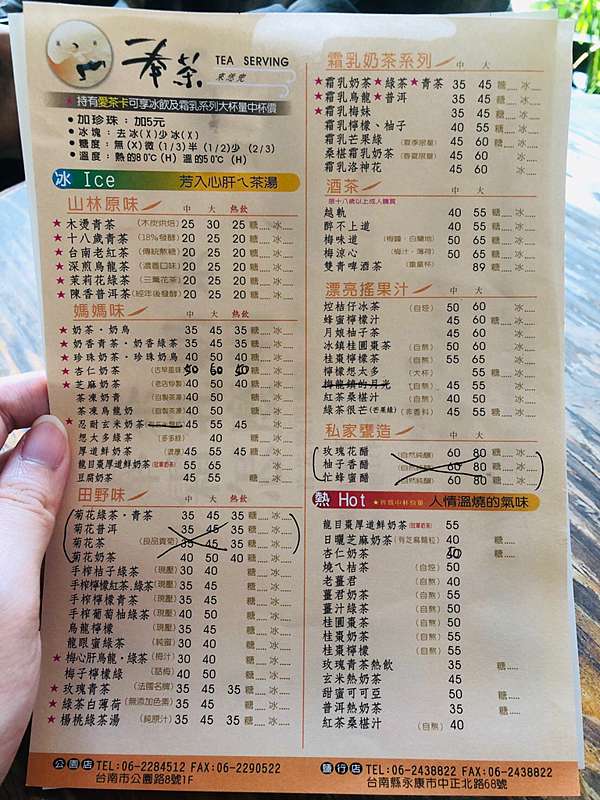 一奉茶 TEA SERVING
來感覺
★持有愛茶卡可享冰飲及霜乳系列大杯量中杯價
●加珍珠：加5元
●冰塊：去冰(X)少冰(X)
●糖度：無(X)微(1/3)半(1/2)少(2/3)
●溫度：熱的80℃(H) 溫的50℃(H)
冰 Ice 芳入心肝ㄟ茶湯
山林原味 中 大 熱飲
★木燙青茶 (木炭烘焙) 25 30 25 糖 冰
★十八歲青茶 (18%發酵) 20 25 20 糖 冰
★台南老紅茶 (傳統熬糖) 20 25 20 糖 冰
★深煎烏龍茶 (濃香口味) 20 25 20 糖 冰
★茉莉花綠茶 (三薰花茶) 20 25 20 糖 冰
★陳香普洱茶 (經年後發酵) 20 25 20 糖 冰
媽媽味 中 大 熱飲
★奶茶‧奶烏 35 45 35 糖 冰
★奶香青茶‧奶香綠茶 35 45 35 糖 冰
★珍珠奶茶‧珍珠奶烏 40 50 40 糖 冰
★杏仁奶茶 (古早風味) 50 60 50 糖 冰
★芝麻奶茶 (老店炒製) 40 50 40 糖 冰
茶凍奶青 (自製茶凍) 40 50 糖 冰
茶凍烏龍奶 (自製茶凍) 40 50 糖 冰
★忍耐玄米奶茶 45 55 45 糖 冰
想大多綠茶 (多多綠) 40 糖 冰
厚道鮮奶茶 45 55 45 糖 冰
龍目棗厚道鮮奶茶 (冠軍奶茶) 60 糖 冰
豆腐奶茶 45 55 糖 冰
田野味 中 大 熱飲
菊花綠茶‧青茶 35 45 35 糖 冰
菊花普洱 35 45 35 糖 冰
菊花茶 (良品貢菊) 35 45 35 糖 冰
菊花奶茶 40 50 40 糖 冰
手榨桔子綠茶 (現壓) 30 40 糖 冰
手榨檸檬紅茶.綠茶 (現壓) 35 45 糖 冰
手榨檸檬青茶 (現壓) 35 45 糖 冰
手榨葡萄柚綠茶 (現壓) 40 50 糖 冰
烏龍檸檬 (現壓) 35 45 糖 冰
龍眼蜜綠茶 (純蜜) 30 40 糖 冰
★梅心肝烏龍‧綠茶 (梅汁) 30 40 糖 冰
梅子檸檬綠 (話梅) 40 50 糖 冰
★玫瑰青茶 (法國名牌) 35 45 35 糖 冰
★綠茶白薄荷 (無添加色素) 35 45 糖 冰
★楊桃綠茶湯 (純原汁) 35 45 35 糖 冰
霜乳奶茶系列 中 大
★霜乳奶茶★綠茶★青茶 35 45 糖 冰
★霜乳烏龍★普洱 35 45 糖 冰
★霜乳梅妹 35 45 糖 冰
霜乳檸檬、柚子 40 55 糖 冰
霜乳芒果綠 (夏季限量) 45 60 糖 冰
桑椹霜乳奶茶 (春夏限量) 45 60 冰
霜乳洛神花 45 60 冰
酒茶 限十八歲以上成人購買 中 大
越軌 40 55 糖 冰
醉不上道 40 55 糖 冰
梅味道 (梅露．白蘭地) 50 65 糖 冰
梅涼心 (梅汁．薄荷) 50 65 糖 冰
雙青啤酒茶 (重量杯) 89 糖 冰
漂亮搖果汁 中 大
焢桔仔冰茶 (自焢) 50 60
蜂蜜檸檬汁 45 60 糖 冰
月娘柚子茶 45 60 冰
冰鎮桂圓棗茶 (自熬) 50 60 冰
桂棗檸檬茶 (自熬) 55 65 冰
檸檬想太多 (大杯) 55 糖
梅龍鎮的月光 (自熬) 45 55 冰
紅茶桑椹汁 (自熬) 40 50 冰
綠茶很芒(芒果綠) (帝香料) 45 55 糖 冰
私家甕造 中 大
玫瑰花醋 (自然純釀) 60 80 糖 冰
柚子香醋 (自然純釀) 60 80 糖 冰
忙蜂蜜醋 (自然純釀) 60 80 糖 冰
熱 Hot 人情溫燒的氣味
龍目棗厚道鮮奶茶 (冠軍奶茶) 55
日曬芝麻奶茶 (有芝麻顆粒) 40 糖
杏仁奶茶 50 糖
燒ㄟ桔茶 (自焢) 50
老薑君 (自熬) 40
薑君奶茶 (自熬) 55
薑汁綠茶 (自熬) 50
桂圓棗茶 (自熬) 50
桂棗奶茶 (自熬) 55
桂棗檸檬 (自熬) 55
玫瑰青茶熱飲 35 糖
玄米熱奶茶 45
甜蜜可可亞 50 糖
普洱熱奶茶 35 糖
紅茶桑椹汁 (自熬) 40
公園店 TEL:06-2284512 FAX:06-2290522
台南市公園路8號1F
鹽行店 TEL:06-2438822 FAX:06-2438822
台南縣永康市中正北路68號